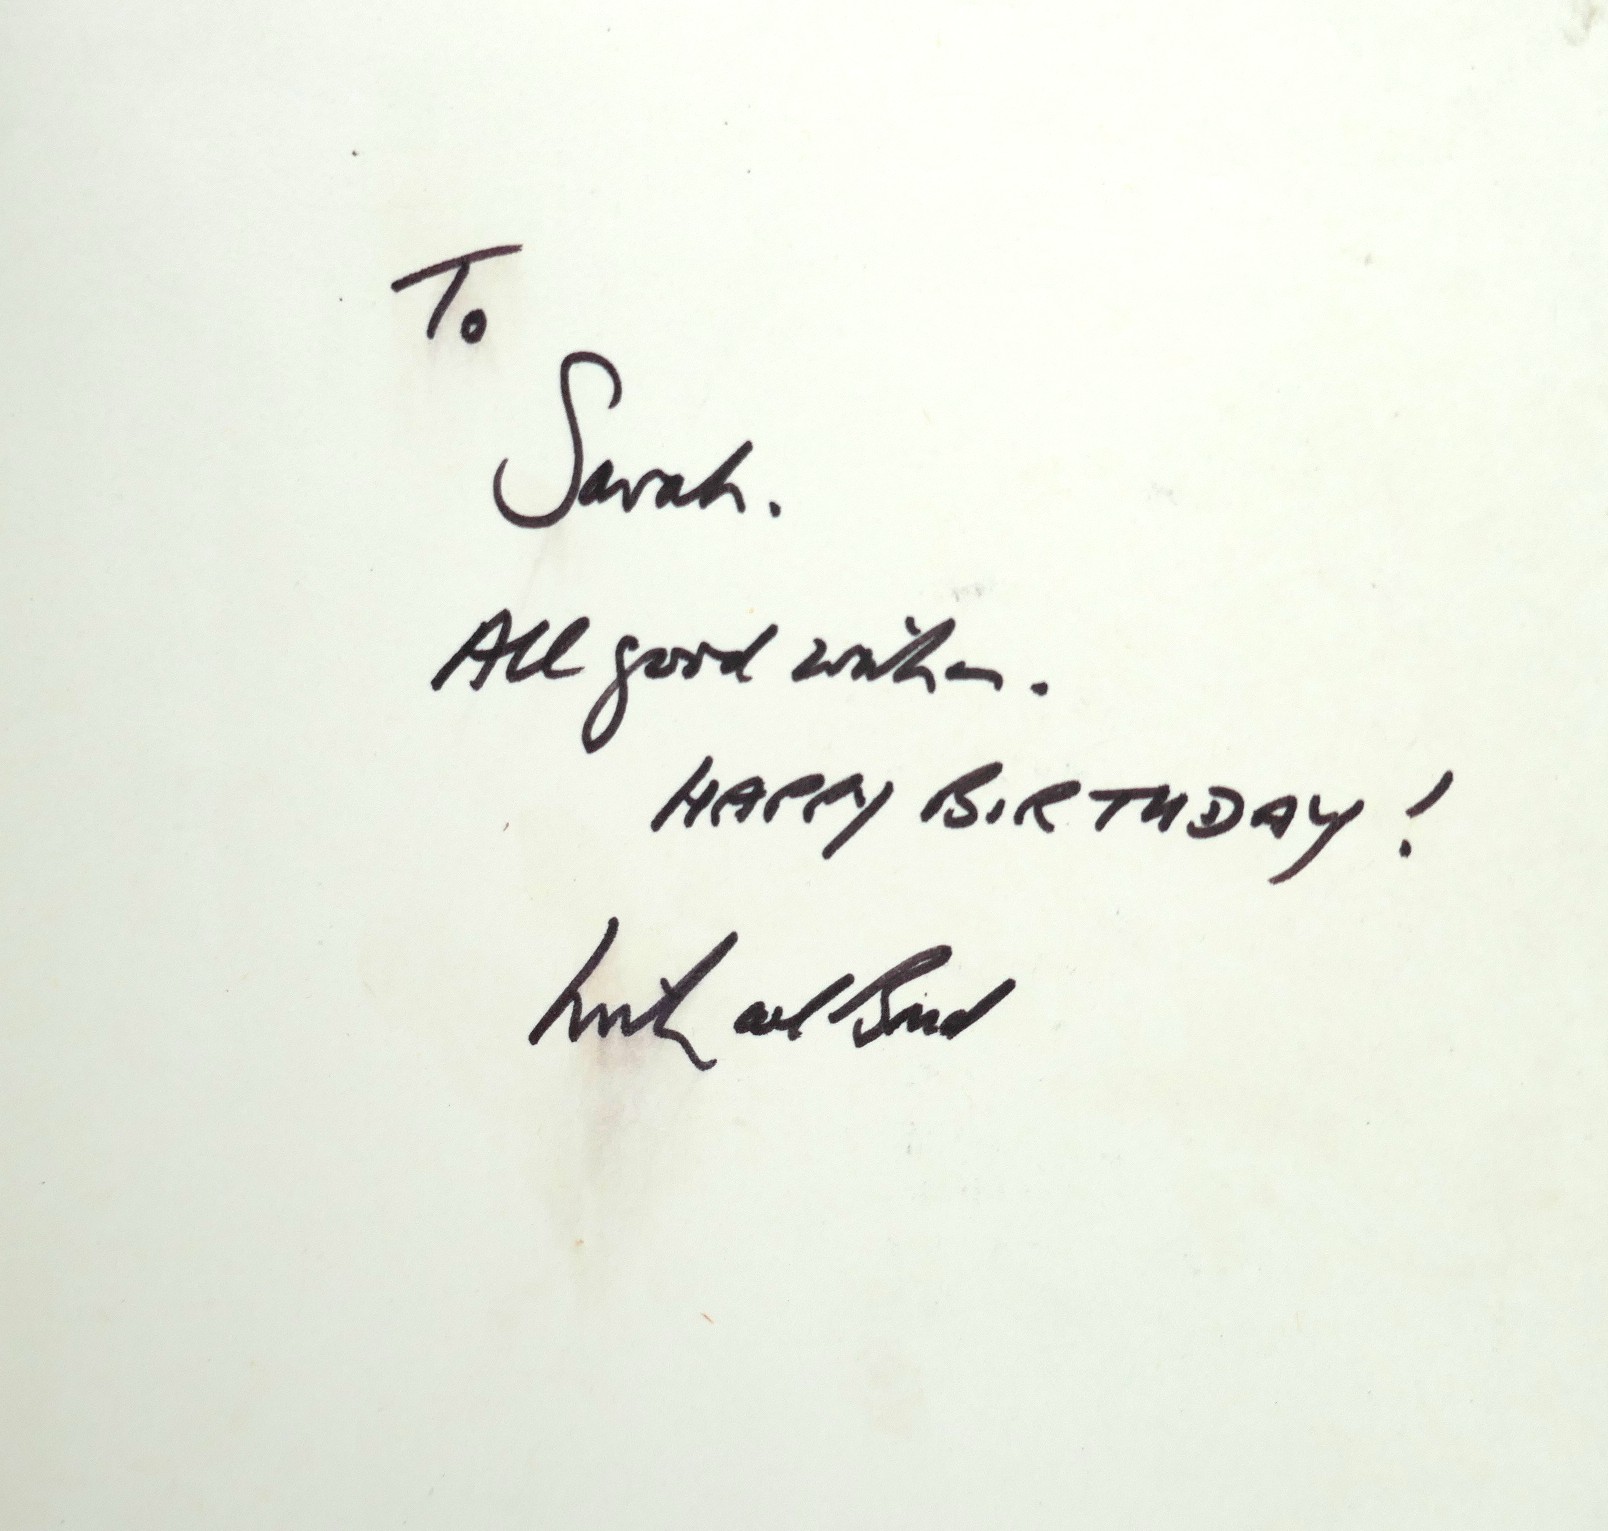 To
Sarah.
All good wishes.
HAPPY BIRTHDAY!